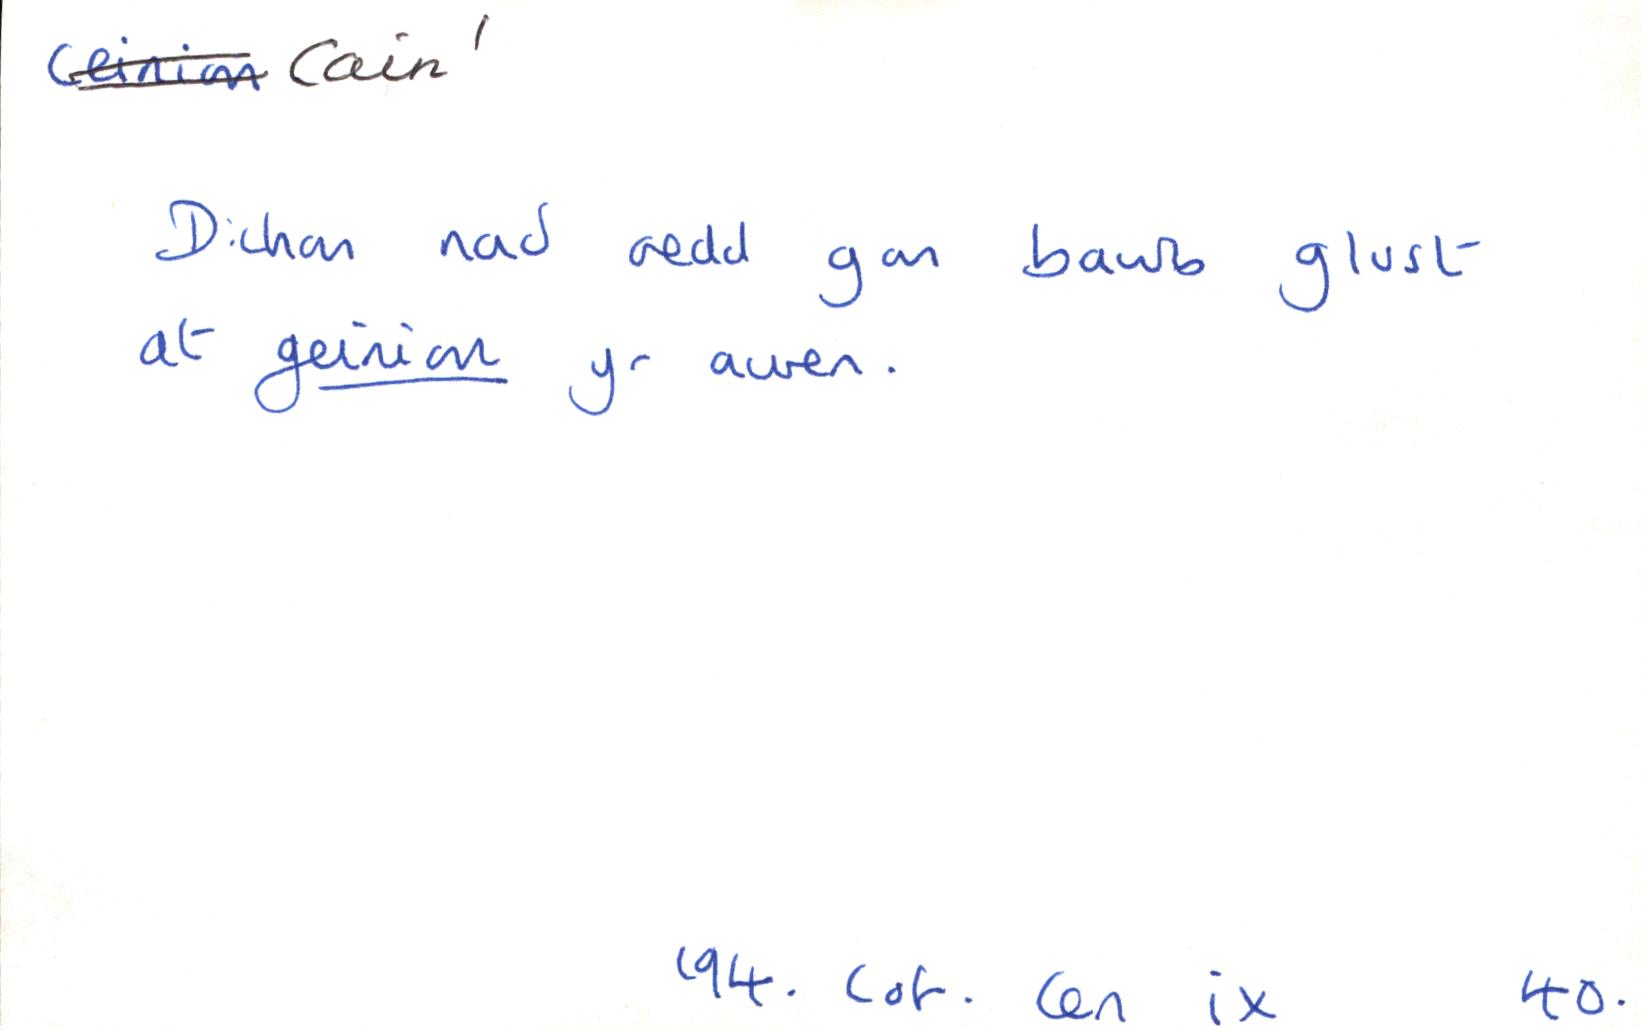 Ceinion Cain¹
Dichon nad oedd gan bawb glust
at geinion yr awen.
194. Cof. Cen ix 40.